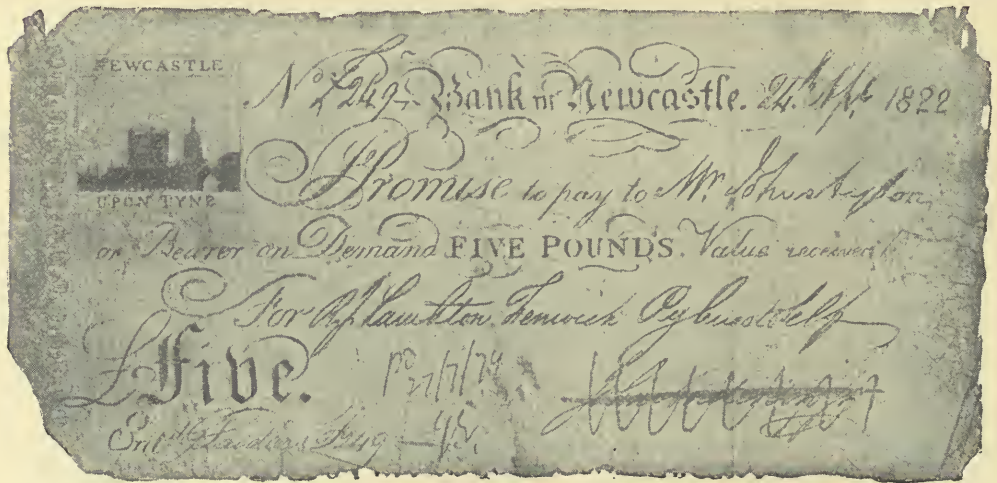 NEWCASTLE
UPON TYNE
No 1249 Bank in Newcastle. 24th 1822
I Promise to pay to Mr. John
or Bearer on Demand FIVE POUNDS. Value received
For Lambton Fenwick Pybus & Self
£Five.
Po 27/7/74
Entd